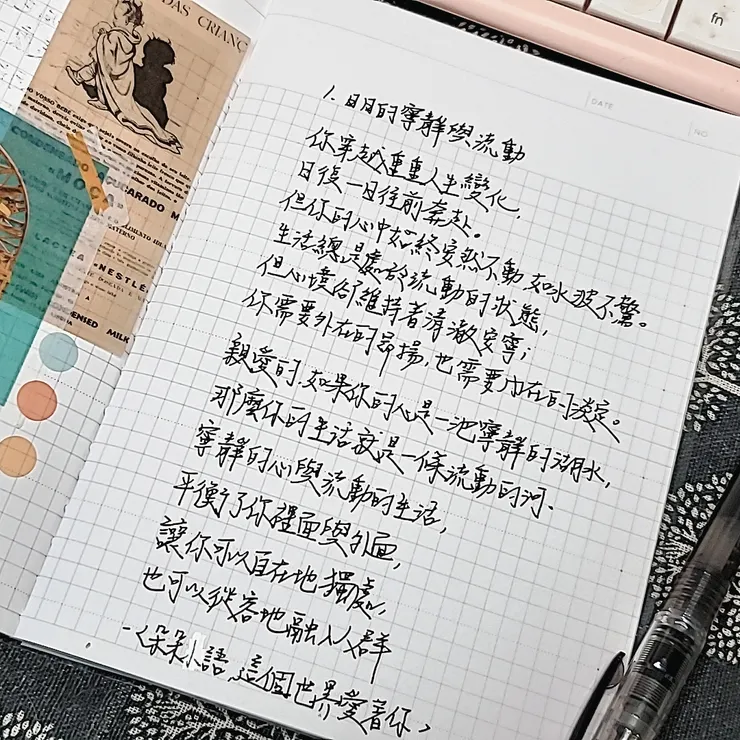 DAS CRIANC
O VOSSO BEBE
CONDENSADO
MOÇA
SUCARADO M
NESTLÉ
DENSED MILK
fn
DATE
NO.
1. 日日的寧靜與流動
你穿越重重人生變化,
日復一日往前奔赴。
但你的心中始終安然不動,如水波不驚。
生活總是處於流動的狀態,
但心境卻維持著清澈安寧;
你需要外在的昂揚,也需要內在的淡定。
親愛的,如果你的心是一池寧靜的湖水,
那麼你的生活就是一條流動的河.
寧靜的心與流動的生活,
平衡了你裡面與外面,
讓你可以自在地獨處,
也可以從容地融入人群
-<朵朵小語,這個世界愛著你>